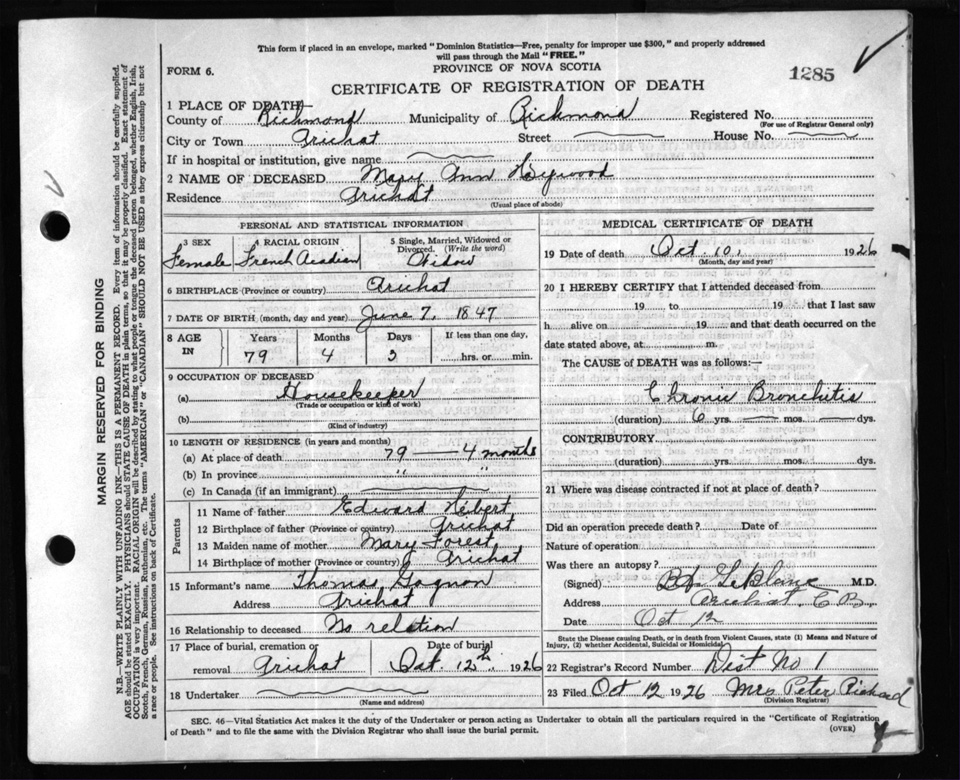 This form if placed in an envelope, marked "Dominion Statistics—Free, penalty for improper use $300," and properly addressed
will pass through the Mail "FREE."
FORM 6.
PROVINCE OF NOVA SCOTIA
1285
CERTIFICATE OF REGISTRATION OF DEATH
1 PLACE OF DEATH—
County of Richmond Municipality of Richmond Registered No.
(For use of Registrar General only)
City or Town Arichat Street House No.
If in hospital or institution, give name
2 NAME OF DECEASED Mary Ann
Residence Arichat
(Usual place of abode)
PERSONAL AND STATISTICAL INFORMATION
3 SEX 4 RACIAL ORIGIN 5 Single, Married, Widowed or Divorced. (Write the word)
Female French Acadian Widow
6 BIRTHPLACE (Province or country) Arichat
7 DATE OF BIRTH (month, day and year) June 7, 1847
8 AGE IN Years Months Days If less than one day,
79 4 3 hrs. or min.
9 OCCUPATION OF DECEASED
(a) Housekeeper
(Trade or occupation or kind of work)
(b)
(Kind of industry)
10 LENGTH OF RESIDENCE (in years and months)
(a) At place of death 79 — 4 months
(b) In province " "
(c) In Canada (if an immigrant)
Parents
11 Name of father Edward Hibert
12 Birthplace of father (Province or country) Arichat
13 Maiden name of mother Mary Forest
14 Birthplace of mother (Province or country) Arichat
15 Informant's name Thomas Gagnon
Address Arichat
16 Relationship to deceased No relation
17 Place of burial, cremation or removal Arichat Date of burial Oct 12th 1926
18 Undertaker
(Name and address)
MEDICAL CERTIFICATE OF DEATH
19 Date of death Oct 10, 1926
(Month, day and year)
20 I HEREBY CERTIFY that I attended deceased from
19 to 19 that I last saw
h alive on 19 and that death occurred on the
date stated above, at m.
The CAUSE of DEATH was as follows:—
Chronic Bronchitis
(duration) 6 yrs. mos. dys.
CONTRIBUTORY
(duration) yrs. mos. dys.
21 Where was disease contracted if not at place of death?
Did an operation precede death? Date of
Nature of operation
Was there an autopsy?
(Signed) LeBlanc M.D.
Address Arichat, C.B.
Date Oct 12
State the Disease causing Death, or in death from Violent Causes, state (1) Means and Nature of
Injury, (2) whether Accidental, Suicidal or Homicidal
22 Registrar's Record Number Dist No 1
23 Filed Oct 12 1926 Mrs Peter Richard
(Division Registrar)
SEC. 46—Vital Statistics Act makes it the duty of the Undertaker or person acting as Undertaker to obtain all the particulars required in the "Certificate of Registration
of Death" and to file the same with the Division Registrar who shall issue the burial permit.
(OVER)
MARGIN RESERVED FOR BINDING
N.B.—WRITE PLAINLY WITH UNFADING INK—THIS IS A PERMANENT RECORD. Every item of information should be carefully supplied.
AGE should be stated EXACTLY. PHYSICIANS should STATE CAUSE OF DEATH in plain terms, so that it may be properly classified. Exact statement of
OCCUPATION is very important. RACIAL ORIGIN will be described by stating to what people or tongue the deceased person belonged, whether English, Irish,
Scotch, French, German, Russian, Ruthenian, etc. The terms "AMERICAN" or "CANADIAN" SHOULD NOT BE USED as they express citizenship but not
a race or people. See instructions on back of Certificate.